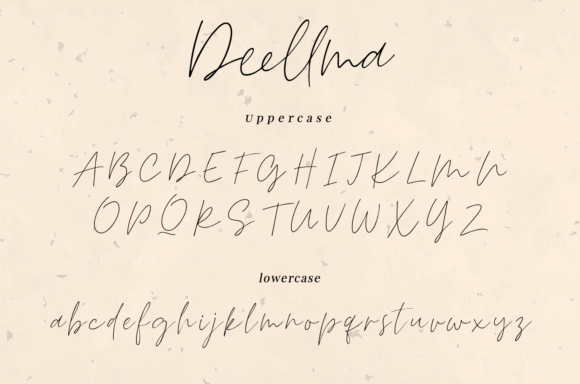 Deellma
Uppercase
ABCDEFGHIJKLMN
OPQRSTUVWXYZ
lowercase
abcdefghijklmnopqrstuvwxyz